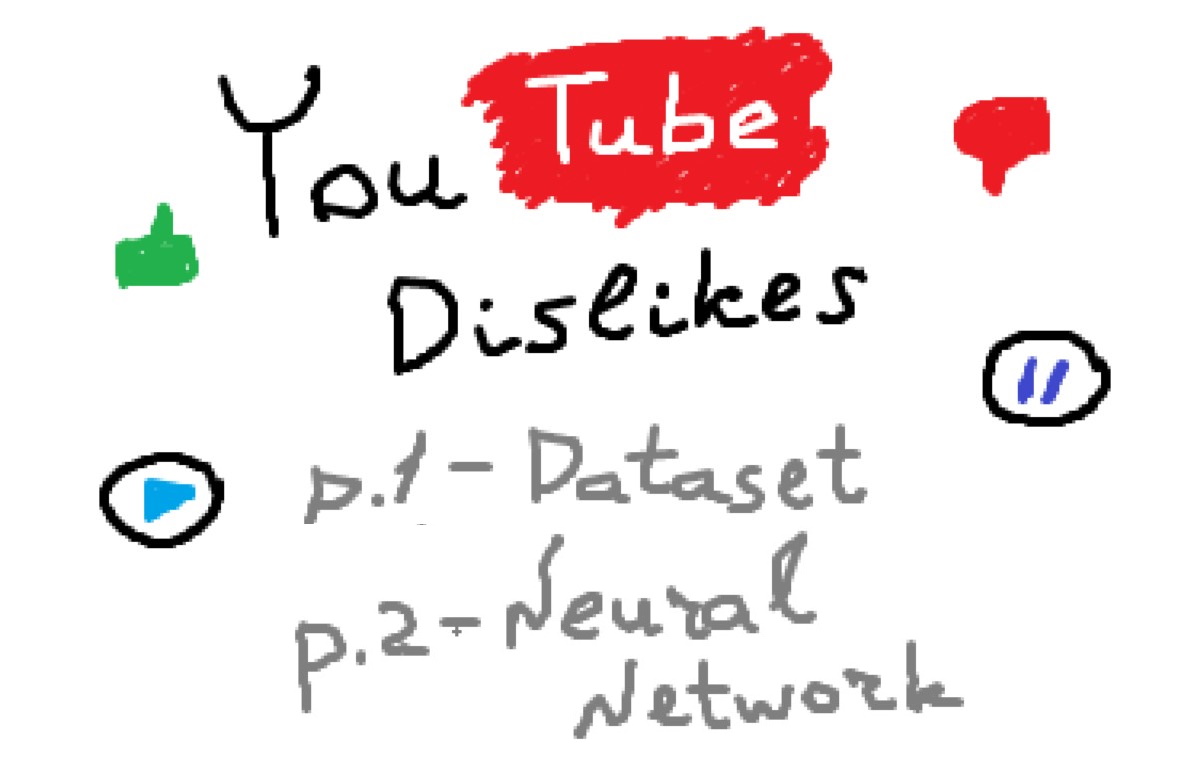 YouTube
Dislikes
p.1 - Dataset
p.2 - Neural
Network